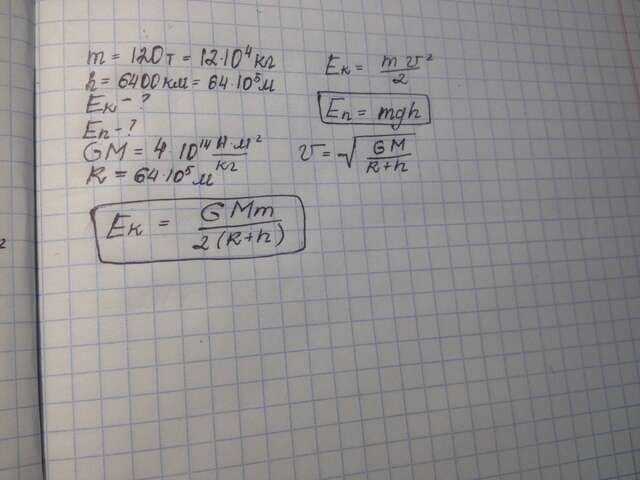 m = 120т = 12·10⁴ кг
h = 6400 км = 64·10⁵ м
Eк - ?
Eп - ?
GM = 4·10¹⁴ Н м²/кг
R = 64·10⁵ м
Eк = mv²/2
Eп = mgh
v = √(GM/(R+h))
Eк = GMm/(2(R+h))